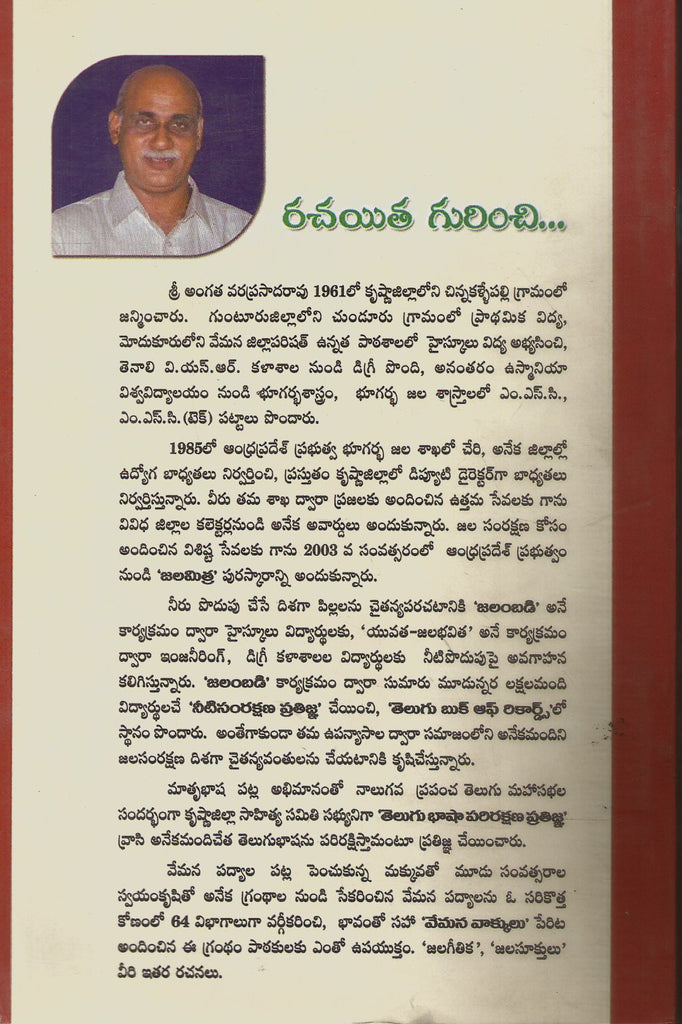 రచయిత గురించి...
శ్రీ అంగత వరప్రసాదరావు 1961లో కృష్ణాజిల్లాలోని చిన్నకళ్ళేపల్లి గ్రామంలో
జన్మించారు. గుంటూరుజిల్లాలోని చుండూరు గ్రామంలో ప్రాథమిక విద్య,
మోదుకూరులోని వేమన జిల్లాపరిషత్ ఉన్నత పాఠశాలలో హైస్కూలు విద్య అభ్యసించి,
తెనాలి వి.యస్.ఆర్. కళాశాల నుండి డిగ్రీ పొంది, అనంతరం ఉస్మానియా
విశ్వవిద్యాలయం నుండి భూగర్భశాస్త్రం, భూగర్భ జల శాస్త్రాలలో ఎం.ఎస్.సి.,
ఎం.ఎస్.సి.(టెక్) పట్టాలు పొందారు.
1985లో ఆంధ్రప్రదేశ్ ప్రభుత్వ భూగర్భ జల శాఖలో చేరి, అనేక జిల్లాల్లో
ఉద్యోగ బాధ్యతలు నిర్వర్తించి, ప్రస్తుతం కృష్ణాజిల్లాలో డిప్యూటి డైరెక్టర్‌గా బాధ్యతలు
నిర్వర్తిస్తున్నారు. వీరు తమ శాఖ ద్వారా ప్రజలకు అందించిన ఉత్తమ సేవలకు గాను
వివిధ జిల్లాల కలెక్టర్లనుండి అనేక అవార్డులు అందుకున్నారు. జల సంరక్షణ కోసం
అందించిన విశిష్ట సేవలకు గాను 2003 వ సంవత్సరంలో ఆంధ్రప్రదేశ్ ప్రభుత్వం
నుండి ‘జలమిత్ర’ పురస్కారాన్ని అందుకున్నారు.
నీరు పొదుపు చేసే దిశగా పిల్లలను చైతన్యపరచటానికి ‘జలంబడి’ అనే
కార్యక్రమం ద్వారా హైస్కూలు విద్యార్థులకు, ‘యువత-జలభవిత’ అనే కార్యక్రమం
ద్వారా ఇంజనీరింగ్, డిగ్రీ కళాశాలల విద్యార్థులకు నీటిపొదుపుపై అవగాహన
కలిగిస్తున్నారు. ‘జలంబడి’ కార్యక్రమం ద్వారా సుమారు మూడున్నర లక్షలమంది
విద్యార్థులచే ‘నీటిసంరక్షణ ప్రతిజ్ఞ’ చేయించి, ‘తెలుగు బుక్ ఆఫ్ రికార్డ్స్’లో
స్థానం పొందారు. అంతేగాకుండా తమ ఉపన్యాసాల ద్వారా సమాజంలోని అనేకమందిని
జలసంరక్షణ దిశగా చైతన్యవంతులను చేయటానికి కృషిచేస్తున్నారు.
మాతృభాష పట్ల అభిమానంతో నాలుగవ ప్రపంచ తెలుగు మహాసభల
సందర్భంగా కృష్ణాజిల్లా సాహిత్య సమితి సభ్యునిగా ‘తెలుగు భాషా పరిరక్షణ ప్రతిజ్ఞ’
వ్రాసి అనేకమందిచేత తెలుగుభాషను పరిరక్షిస్తామంటూ ప్రతిజ్ఞ చేయించారు.
వేమన పద్యాల పట్ల పెంచుకున్న మక్కువతో మూడు సంవత్సరాల
స్వయంకృషితో అనేక గ్రంథాల నుండి సేకరించిన వేమన పద్యాలను ఓ సరికొత్త
కోణంలో 64 విభాగాలుగా వర్గీకరించి, భావంతో సహా ‘వేమన వాక్కులు’ పేరిట
అందించిన ఈ గ్రంథం పాఠకులకు ఎంతో ఉపయుక్తం. ‘జలగీతిక’, ‘జలసూక్తులు’
వీరి ఇతర రచనలు.